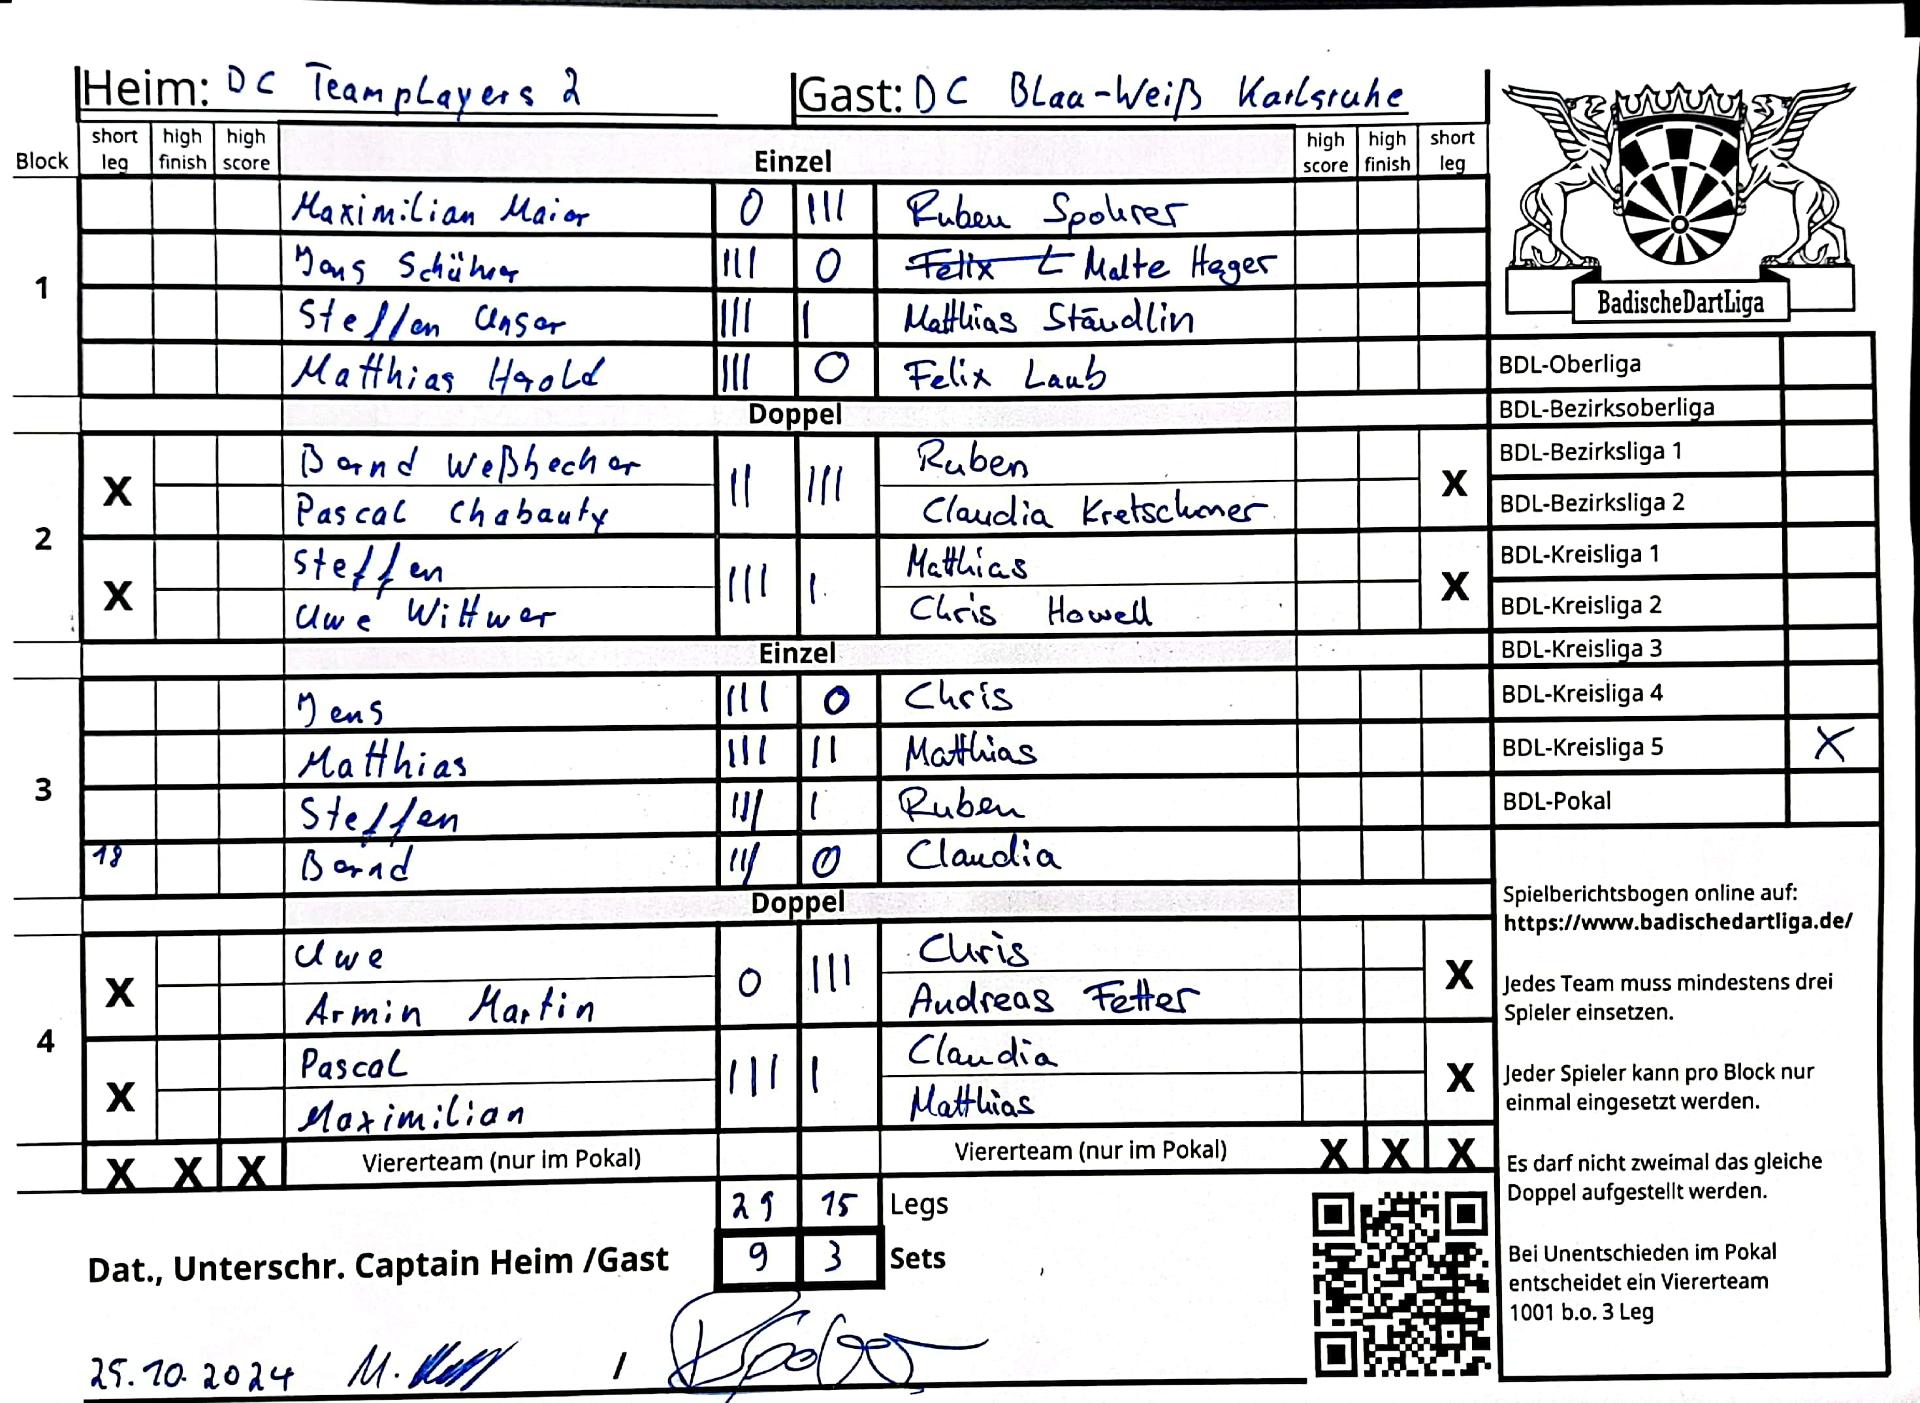 Heim: DC Teamplayers 2 Gast: DC Blau-Weiß Karlsruhe
Block short leg high finish high score Einzel high score high finish short leg
1
Maximilian Maier 0 III Ruben Spohrer
Jens Schührer III 0 Felix L Malte Heger
Steffen Unser III I Matthias Ständlin
Matthias Herold III 0 Felix Laub
Doppel
2
X Bernd Weßbecher II III Ruben X
Pascal Chabauty Claudia Kretschmer
X Steffen III I Matthias X
Uwe Wittwer Chris Howell
Einzel
3
Jens III 0 Chris
Matthias III II Matthias
Steffen III I Ruben
18 Bernd III 0 Claudia
Doppel
4
X Uwe 0 III Chris X
Armin Martin Andreas Fetter
X Pascal III I Claudia X
Maximilian Matthias
X X X Viererteam (nur im Pokal) Viererteam (nur im Pokal) X X X
29 15 Legs
9 3 Sets
Dat., Unterschr. Captain Heim /Gast
25.10.2024 M. /
BadischeDartLiga
BDL-Oberliga
BDL-Bezirksoberliga
BDL-Bezirksliga 1
BDL-Bezirksliga 2
BDL-Kreisliga 1
BDL-Kreisliga 2
BDL-Kreisliga 3
BDL-Kreisliga 4
BDL-Kreisliga 5 X
BDL-Pokal
Spielberichtsbogen online auf:
https://www.badischedartliga.de/
Jedes Team muss mindestens drei
Spieler einsetzen.
Jeder Spieler kann pro Block nur
einmal eingesetzt werden.
Es darf nicht zweimal das gleiche
Doppel aufgestellt werden.
Bei Unentschieden im Pokal
entscheidet ein Viererteam
1001 b.o. 3 Leg